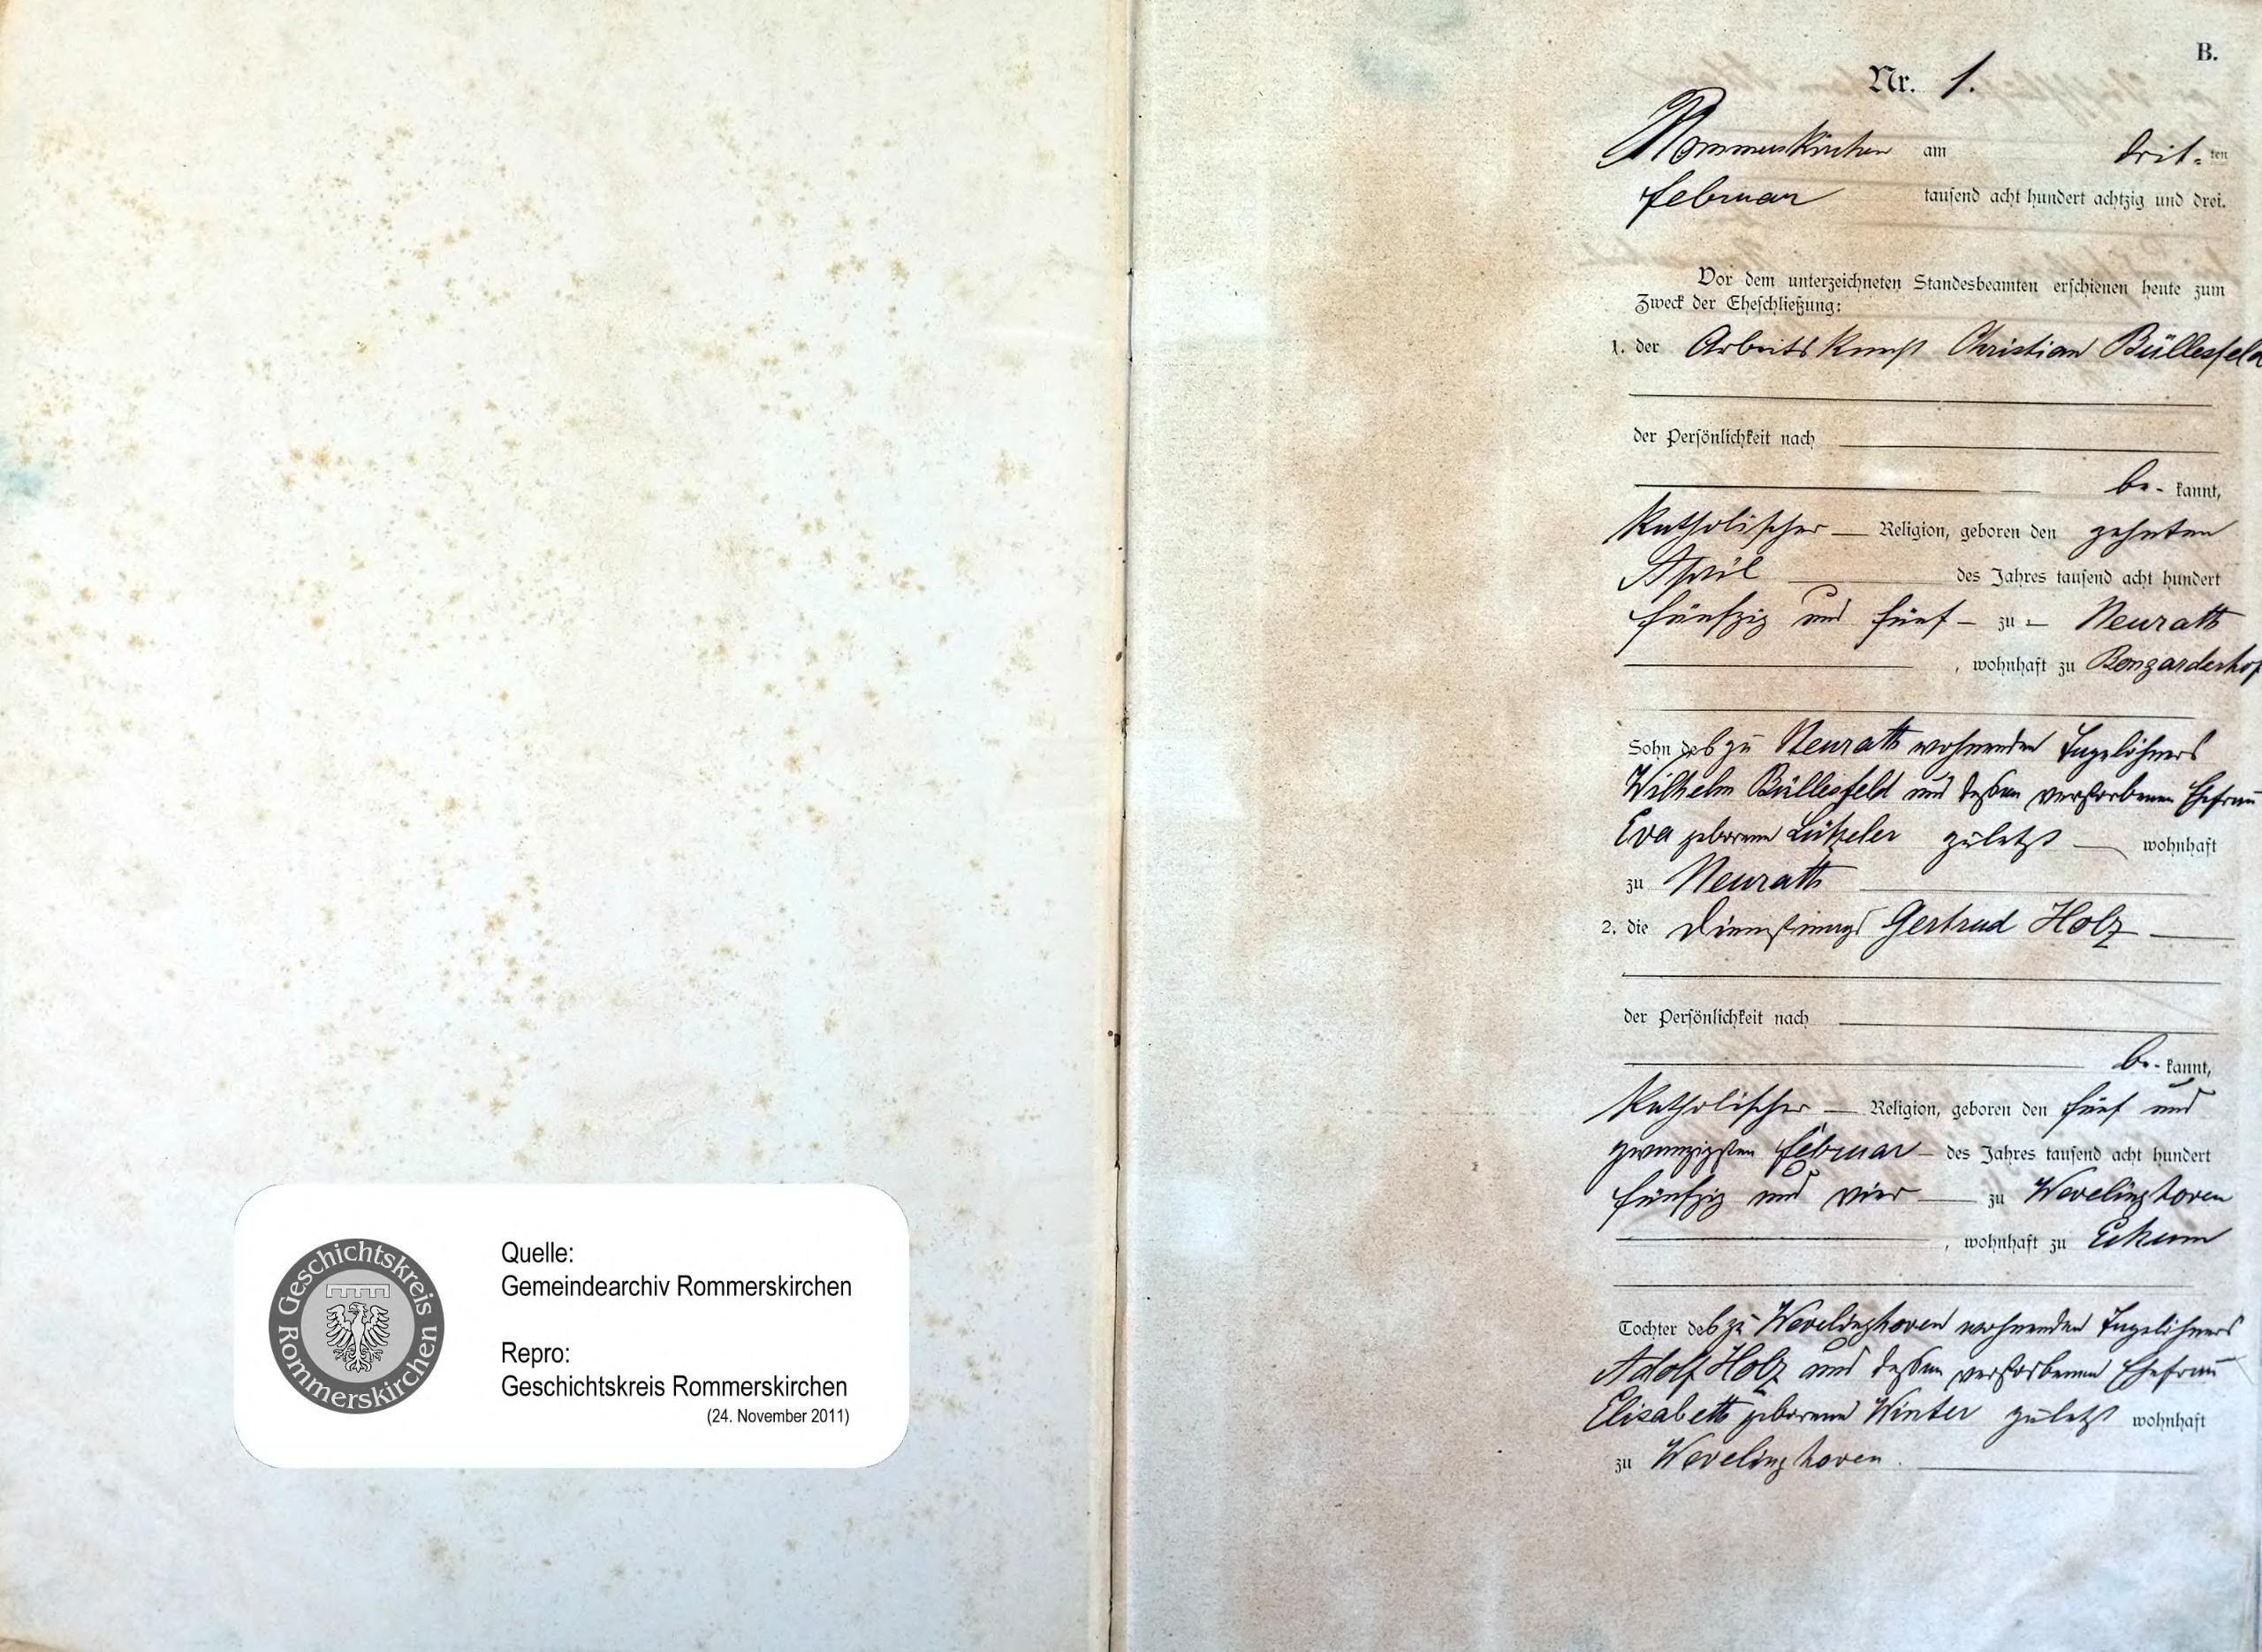 Geschichtskreis Rommerskirchen
Quelle:
Gemeindearchiv Rommerskirchen
Repro:
Geschichtskreis Rommerskirchen
(24. November 2011)
B.
Nr. 1.
Rommerskirchen am drit-ten
Februar tausend acht hundert achtzig und drei.
Vor dem unterzeichneten Standesbeamten erschienen heute zum
Zweck der Eheschließung:
1. der Arbeitsknecht Christian Büllesfeld
der Persönlichkeit nach
be- kannt,
katholischer Religion, geboren den zehnten
April des Jahres tausend acht hundert
fünfzig und fünf zu Neurath
, wohnhaft zu Bongarderhof
Sohn des zu Neurath wohnenden Tagelöhners
Wilhelm Büllesfeld und dessen verstorbenen Ehefrau
Eva geborene Lützeler zuletzt wohnhaft
zu Neurath
2. die Dienstmagd Gertrud Holz
der Persönlichkeit nach
be- kannt,
katholischer Religion, geboren den fünf und
zwanzigsten Februar des Jahres tausend acht hundert
fünfzig und vier zu Wevelinghoven
, wohnhaft zu Eckum
Tochter des zu Wevelinghoven wohnenden Tagelöhners
Adolf Holz und dessen verstorbenen Ehefrau
Elisabeth geborene Winter zuletzt wohnhaft
zu Wevelinghoven.